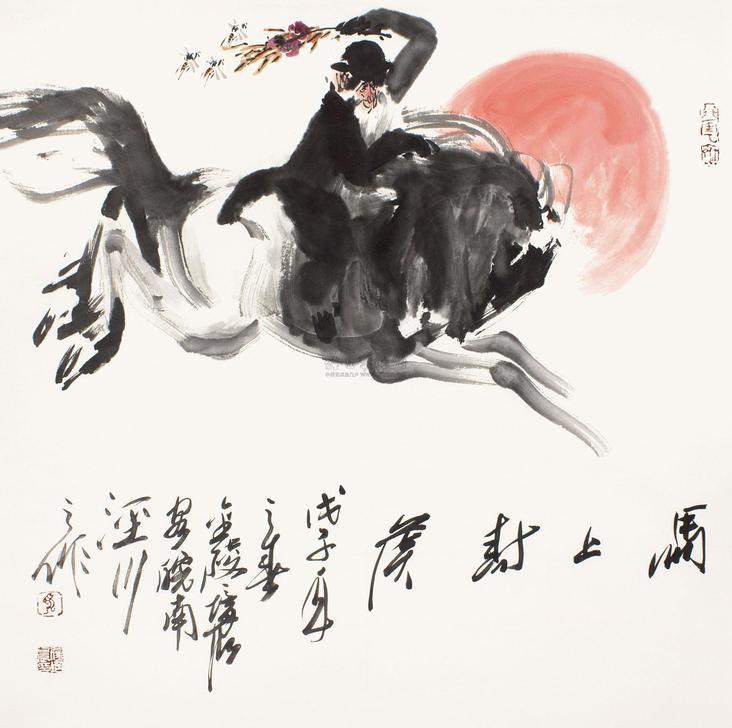 馬上封侯
戊子年
之春
金陵
客皖南
涇川
之作